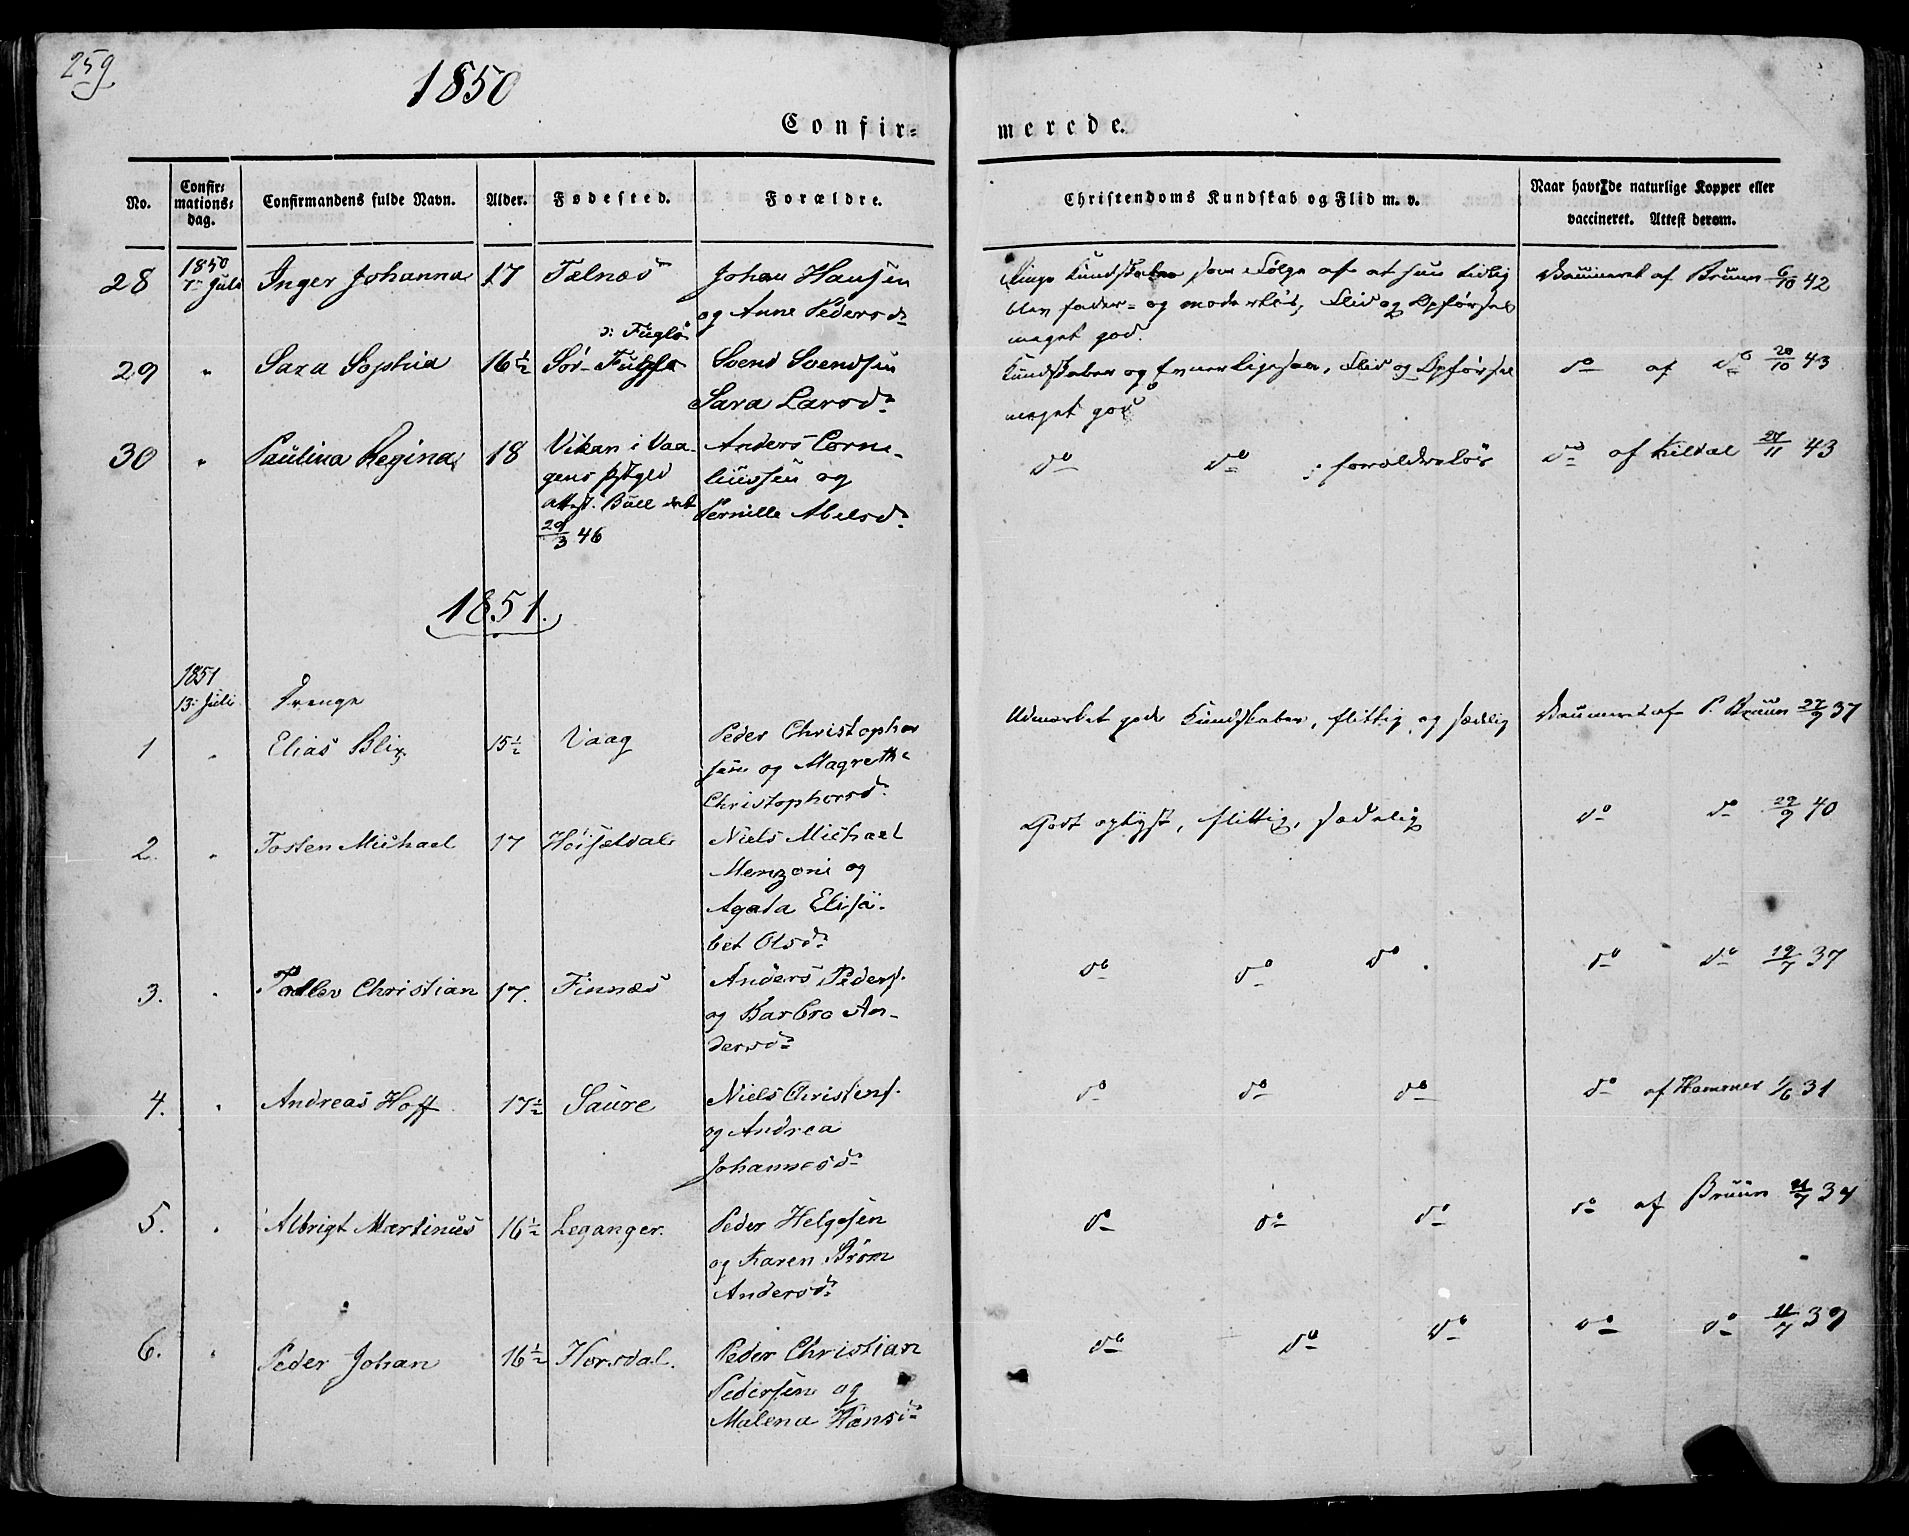 259
1850
Confir=
merede.
No.
Confir=
mations=
dag.
Confirmandens fulde Navn.
Alder.
Fødested.
Forældre.
Christendoms Kundskab og Flid m. v.
Naar havt de naturlige Kopper eller
vaccineret. Attest derom.
28 1850 7de Juli Inger Johanna 17 Fælnæs Johan Hansen
og Anne Pedersdr
Ringe Kundskaber som Følge af at hun tidlig
blev fader- og moderløs; Flid og Opførsel
meget god.
Vaccineret af Bruun 6/10 42
ɔ: Fuglø
29 " Sara Sophia 16½ Sør-Fuglø Svend Svendsen
Sara Larsdr
Kundskaber og Evner ligesaa, Flid og Opførsel
meget god
do af do 20/10 43
30 " Paulina Regina 18 Vikan i Vaa-
gens Pgjld
attest. Bull dat
29/3 46
Anders Corne-
liussen og
Pernille Abelsdr
do do : forældreløs
do af Kildal 27/11 43
1851.
1851
13. Juli Drenge
1 " Elias Blix 15½ Vaag Peder Christopher
sen og Magrethe
Christophersdr
Udmærket gode Kundskaber, flittig og sædelig
Vaccineret af P. Bruun 27/9 37
2. " Tosten Michael 17 Høifældal Niels Michael
Menzoni og
Agata Elisa-
bet Olsdr
Godt oplyst, flittig, sædelig
do do 29/9 40
3. " Tollev Christian 17. Finnæs Anders Peders.
og Barbro An-
dersdr
do do do
do do 19/7 37
4. " Andreas Hoff 17½ Saure Niels Christens.
og Andrea
Johannesdr
do do do
do af Hammer 1/6 31
5. " Albrigt Martinus 16½ Leganger. Peder Helgesen
og Karen Brøm
Andersdr
do do do
do af Bruun
6. " Peder Johan 16½ Horsdal. Peder Christian
Pedersen og
Malena Hansdr
do do do
do do 11/7 39